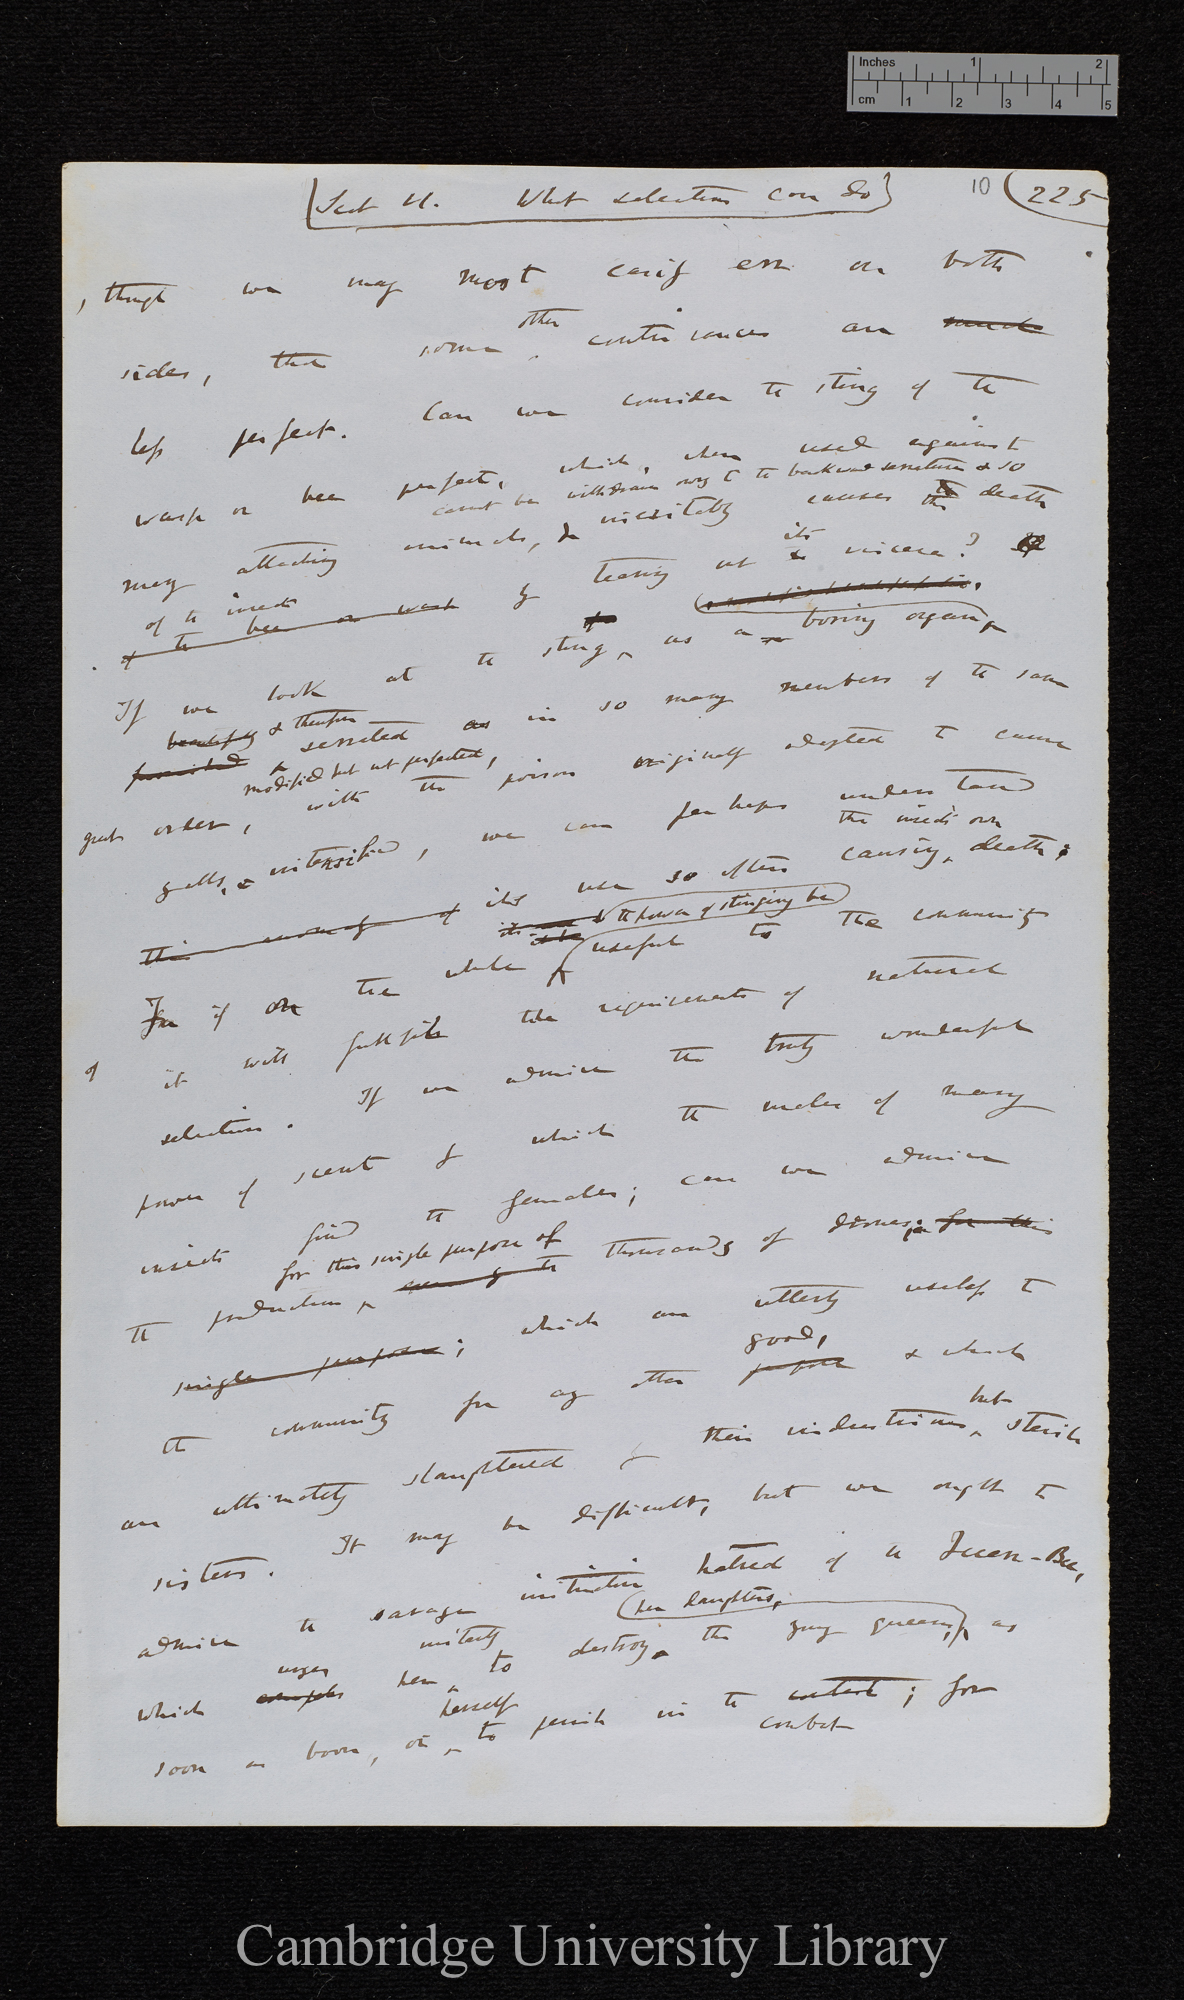 Inches 1 2
cm 1 2 3 4 5
Sect VI. What selection can do
10
225
, though we may most easily err on both
other
sides, that some contrivances are much
less perfect. Can we consider the sting of the
wasp or bee perfect, which, when used against
cannot be withdrawn owing to the backward serratures & so
many attacking animals, inevitably causes the death
of the insect
of the bee or wasp by tearing out its viscera?
If we look at the sting, as a boring organ,
beautifully & therefore
furnished serrated as in so many members of the same
modified but not perfected,
great order, with the poison originally adapted to cause
galls, & intensified, we can perhaps understand
the insect's own
its use so often causing death;
the power of stinging be
For if on the whole useful to the community
it will fulfil the requirements of natural
of
selection. If we admire the truly wonderful
power of scent by which the males of many
insects find the females; can we admire
for this single purpose of
the production, thousands of drones, for this
single purpose; which are utterly useless to
good,
the community for any other purpose & which
but
are ultimately slaughtered by their industrious, sterile
sisters. It may be difficult, but we ought to
admire the savage instinctive hatred of the Queen-Bee,
her daughters,
urges instantly
which her to destroy the young queens, as
herself
soon as born, or to perish in the contest; for
combat
Cambridge University Library